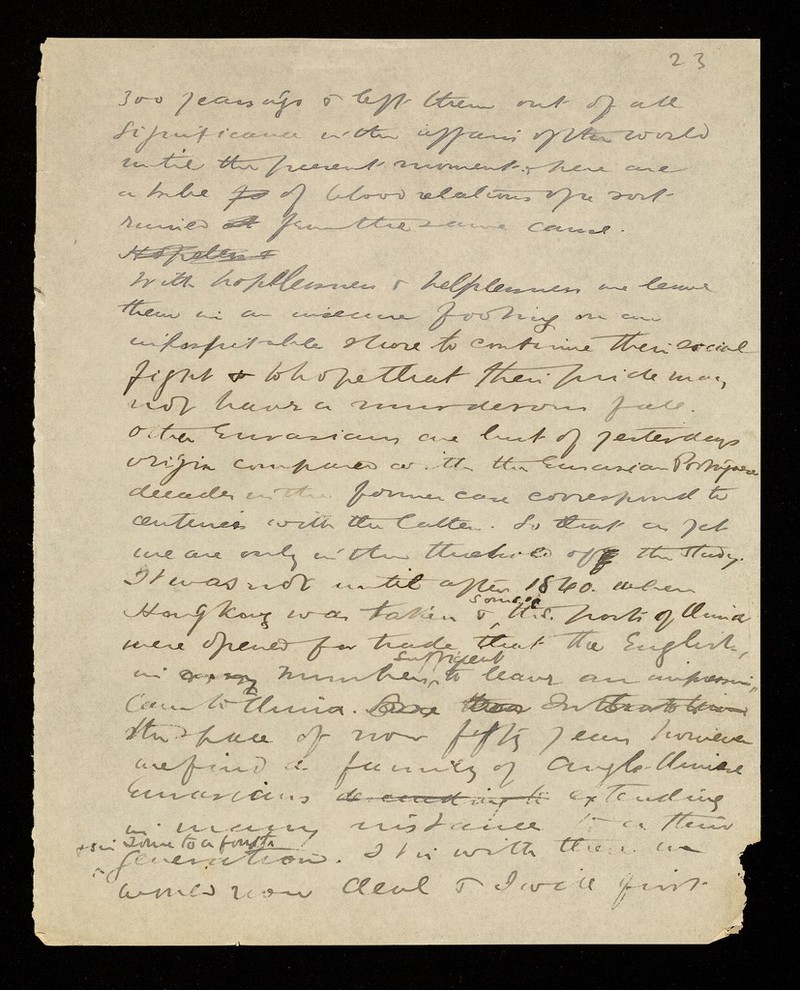 23
300 years ago & left them out of all
significance in the affairs of the world
until the present moment. here are
a tribe of blood relations of a sort
ruined from the same cause.
Hopeless &
With hopelessness & helplessness we leave
them in an insecure footing on an
inhospitable shore to continue their social
fight & to hope that their pride may
not have a murderous fate.
Other Eurasians are but of yesterdays
origin compared with the Eurasian Portuguese
decades in the former case correspond to
centuries with the latter. So that as yet
we are only in the threshold of the study.
It was not until after 1840. when
Hongkong was taken & some of the ports of China
were opened for trade, that the English,
in any numbers, sufficient to leave an impression,
came to China. 
the space of now fifty years however
we find a family of Anglo-Chinese
Eurasians descending to extending
in many instances to a third
& in some to a fourth
generation. It is with these we
would now deal & I will first